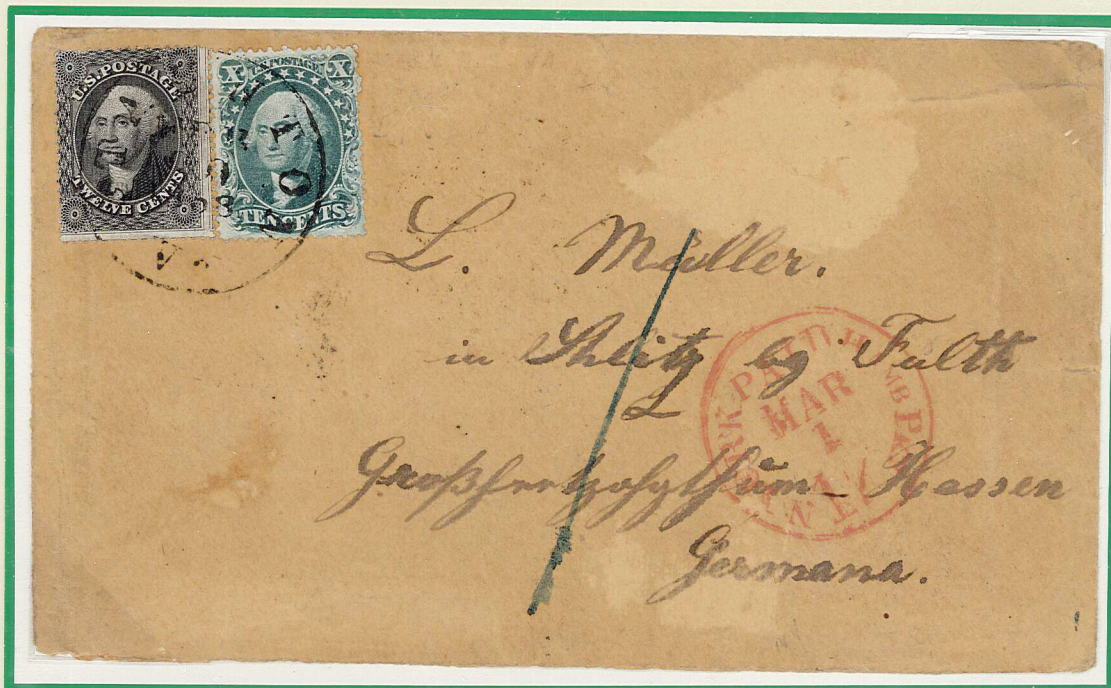 U.S. POSTAGE
TWELVE CENTS
X U.S. POSTAGE X
TEN CENTS
L. Müller.
in Shlitz by Fulth
Großhertzohgthum - Hassen
Germana.
PAID
MAR
1